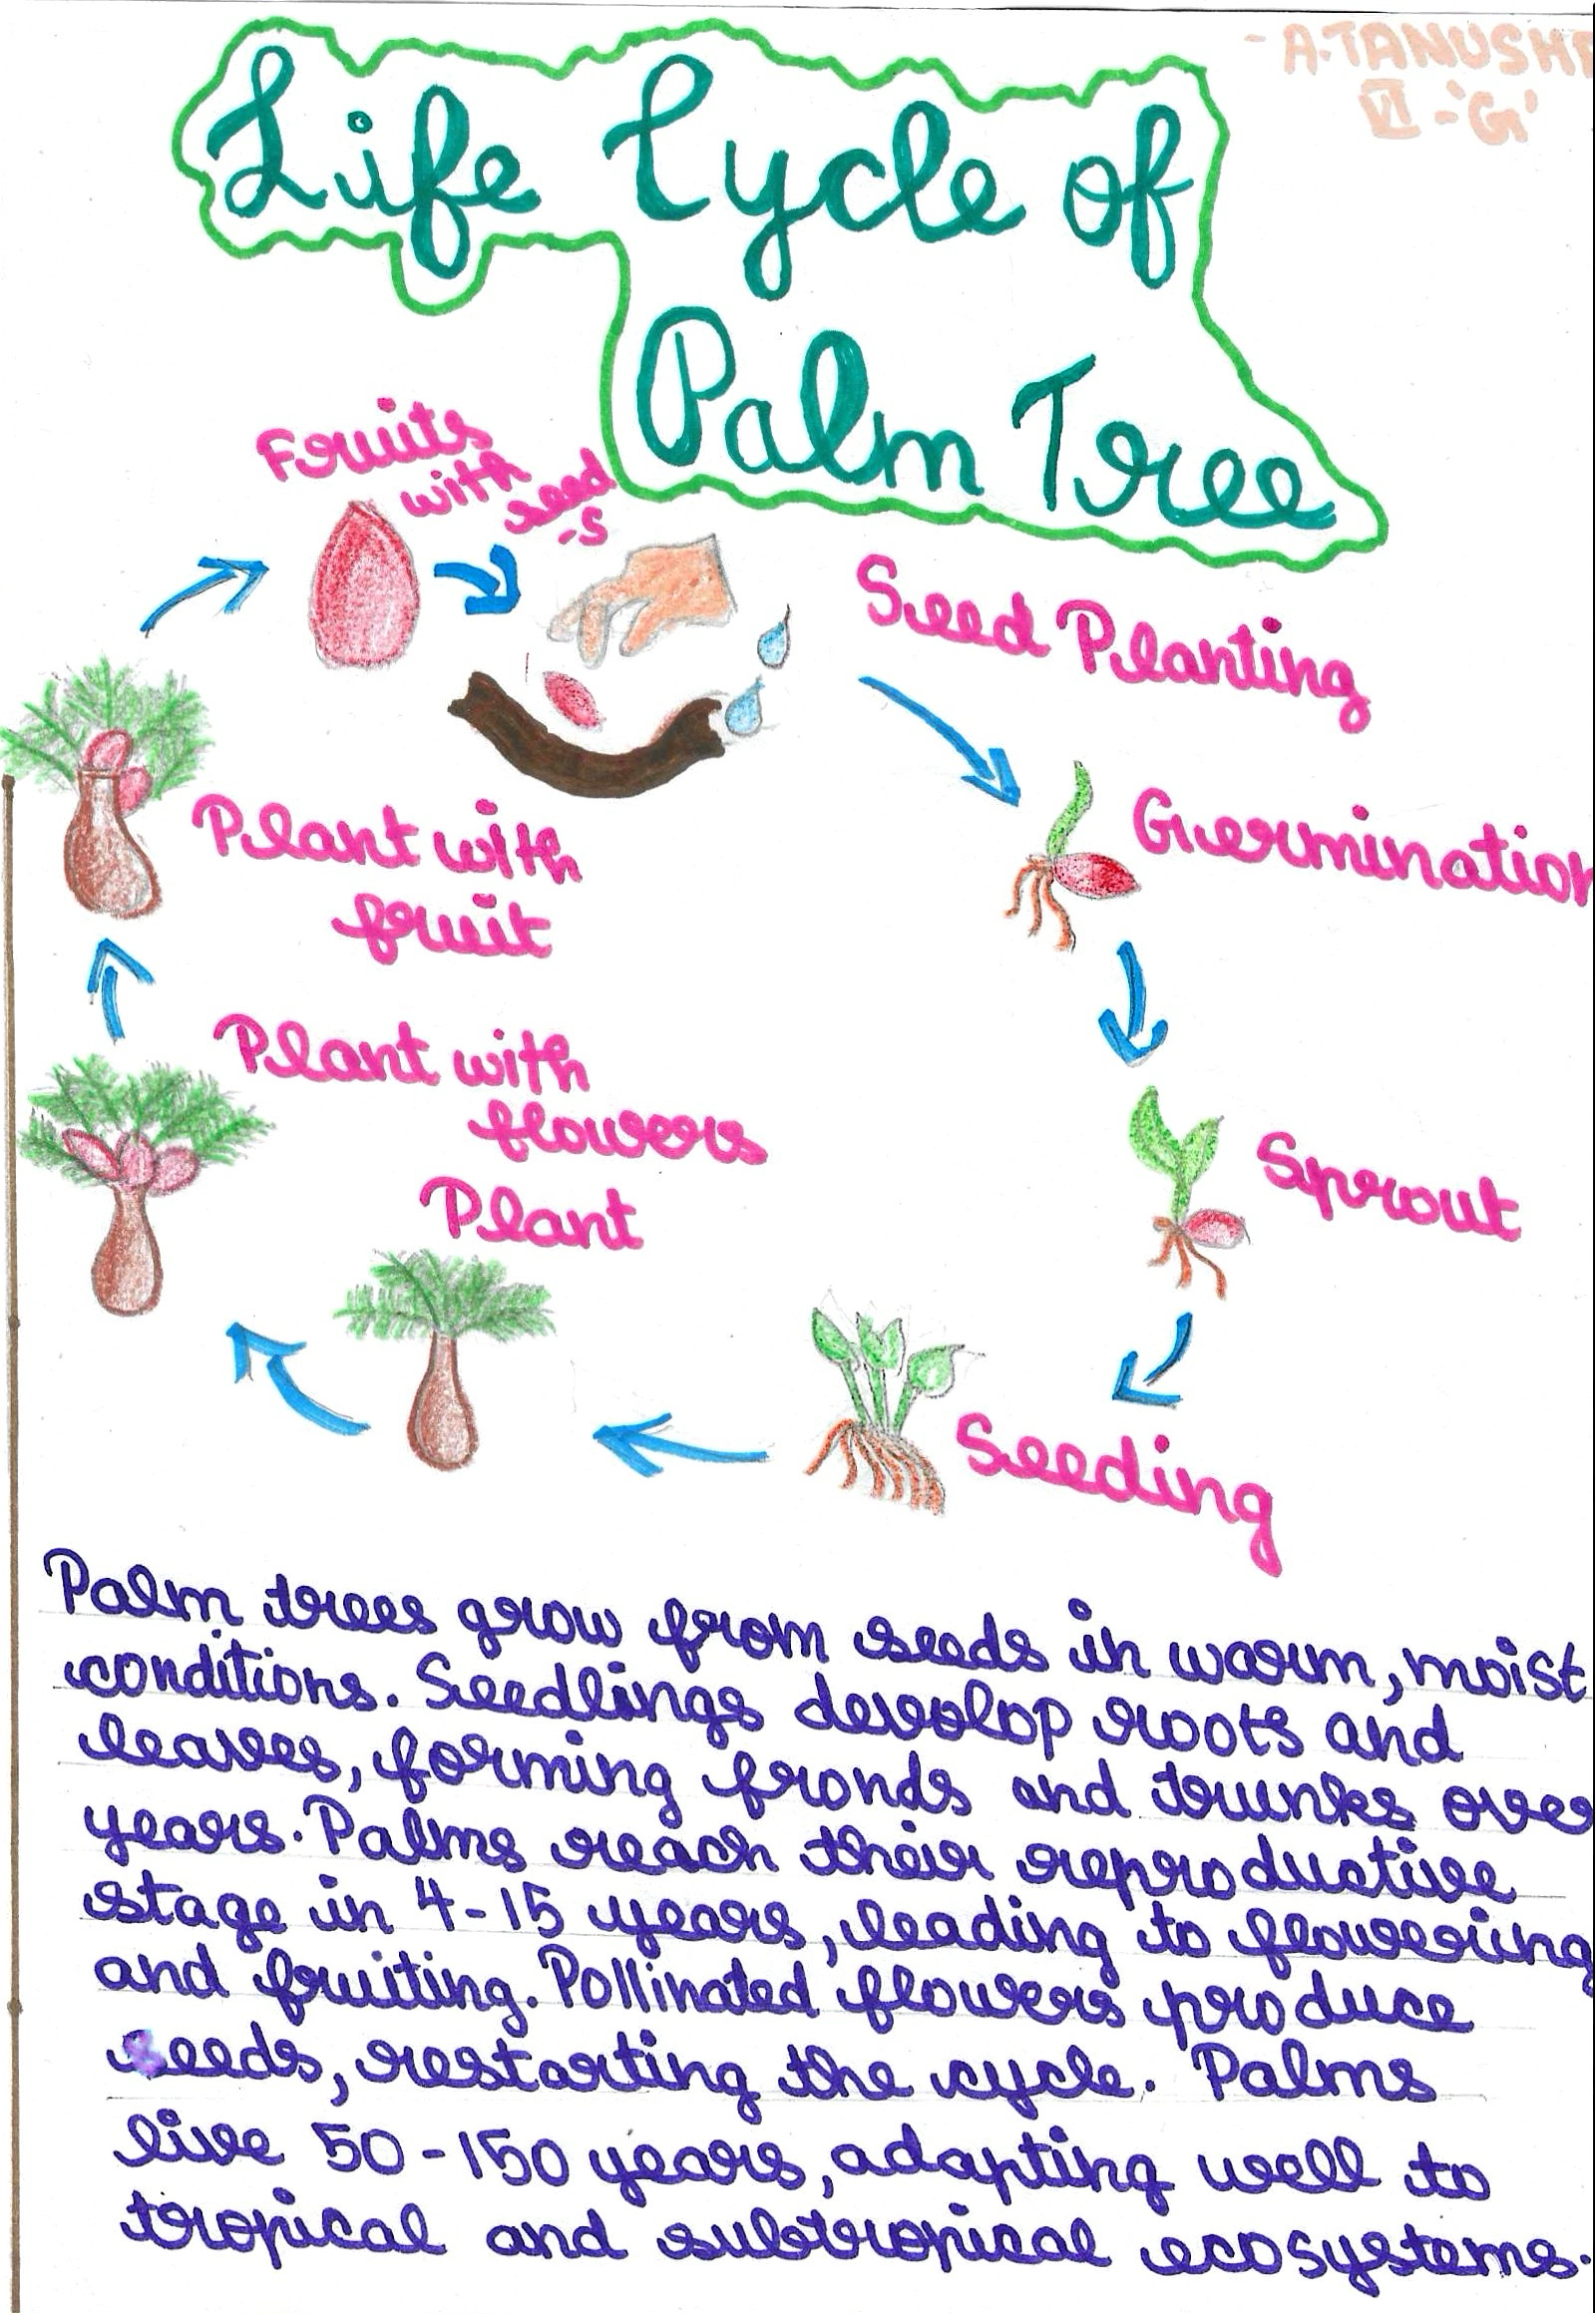 - A.TANUSHR
VI -'G'
Life Cycle of
Palm Tree
Fruits
with
seed
-s
Seed Planting
Germination
Sprout
Seeding
Plant
Plant with
flowers
Plant with
fruit
Palm trees grow from seeds in warm, moist
conditions. Seedlings develop roots and
leaves, forming fronds and trunks over
years. Palms reach their reproductive
stage in 4-15 years, leading to flowering
and fruiting. Pollinated flowers produce
seeds, restarting the cycle. Palms
live 50-150 years, adapting well to
tropical and subtropical ecosystems.